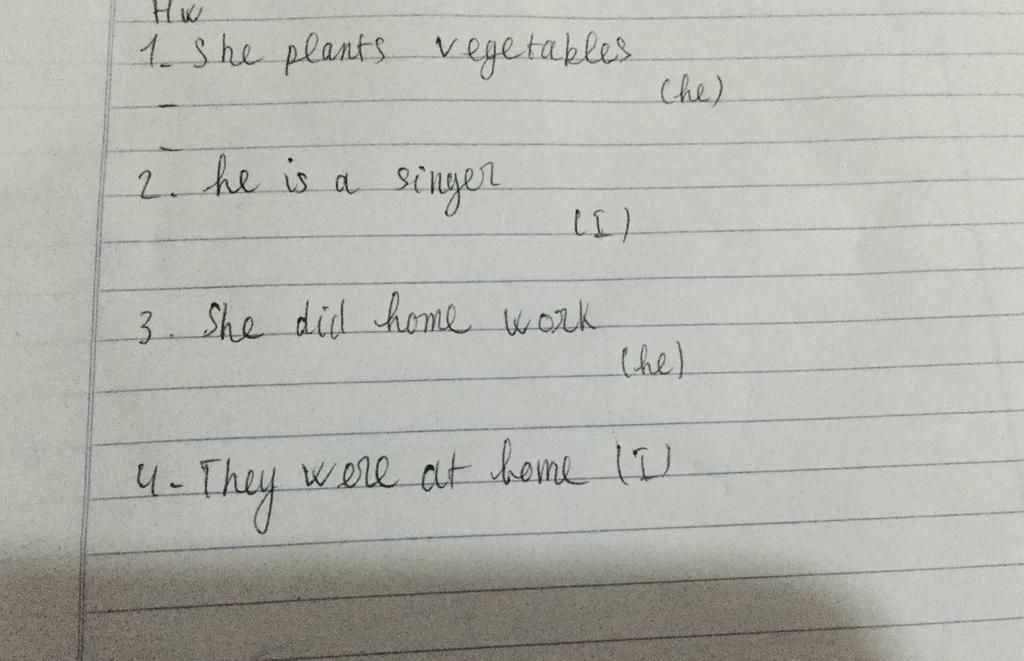 Hw
1- She plants vegetables
(he)
-
-
2. he is a singer
(I)
3. She did home work
(he)
4- They were at home (I)